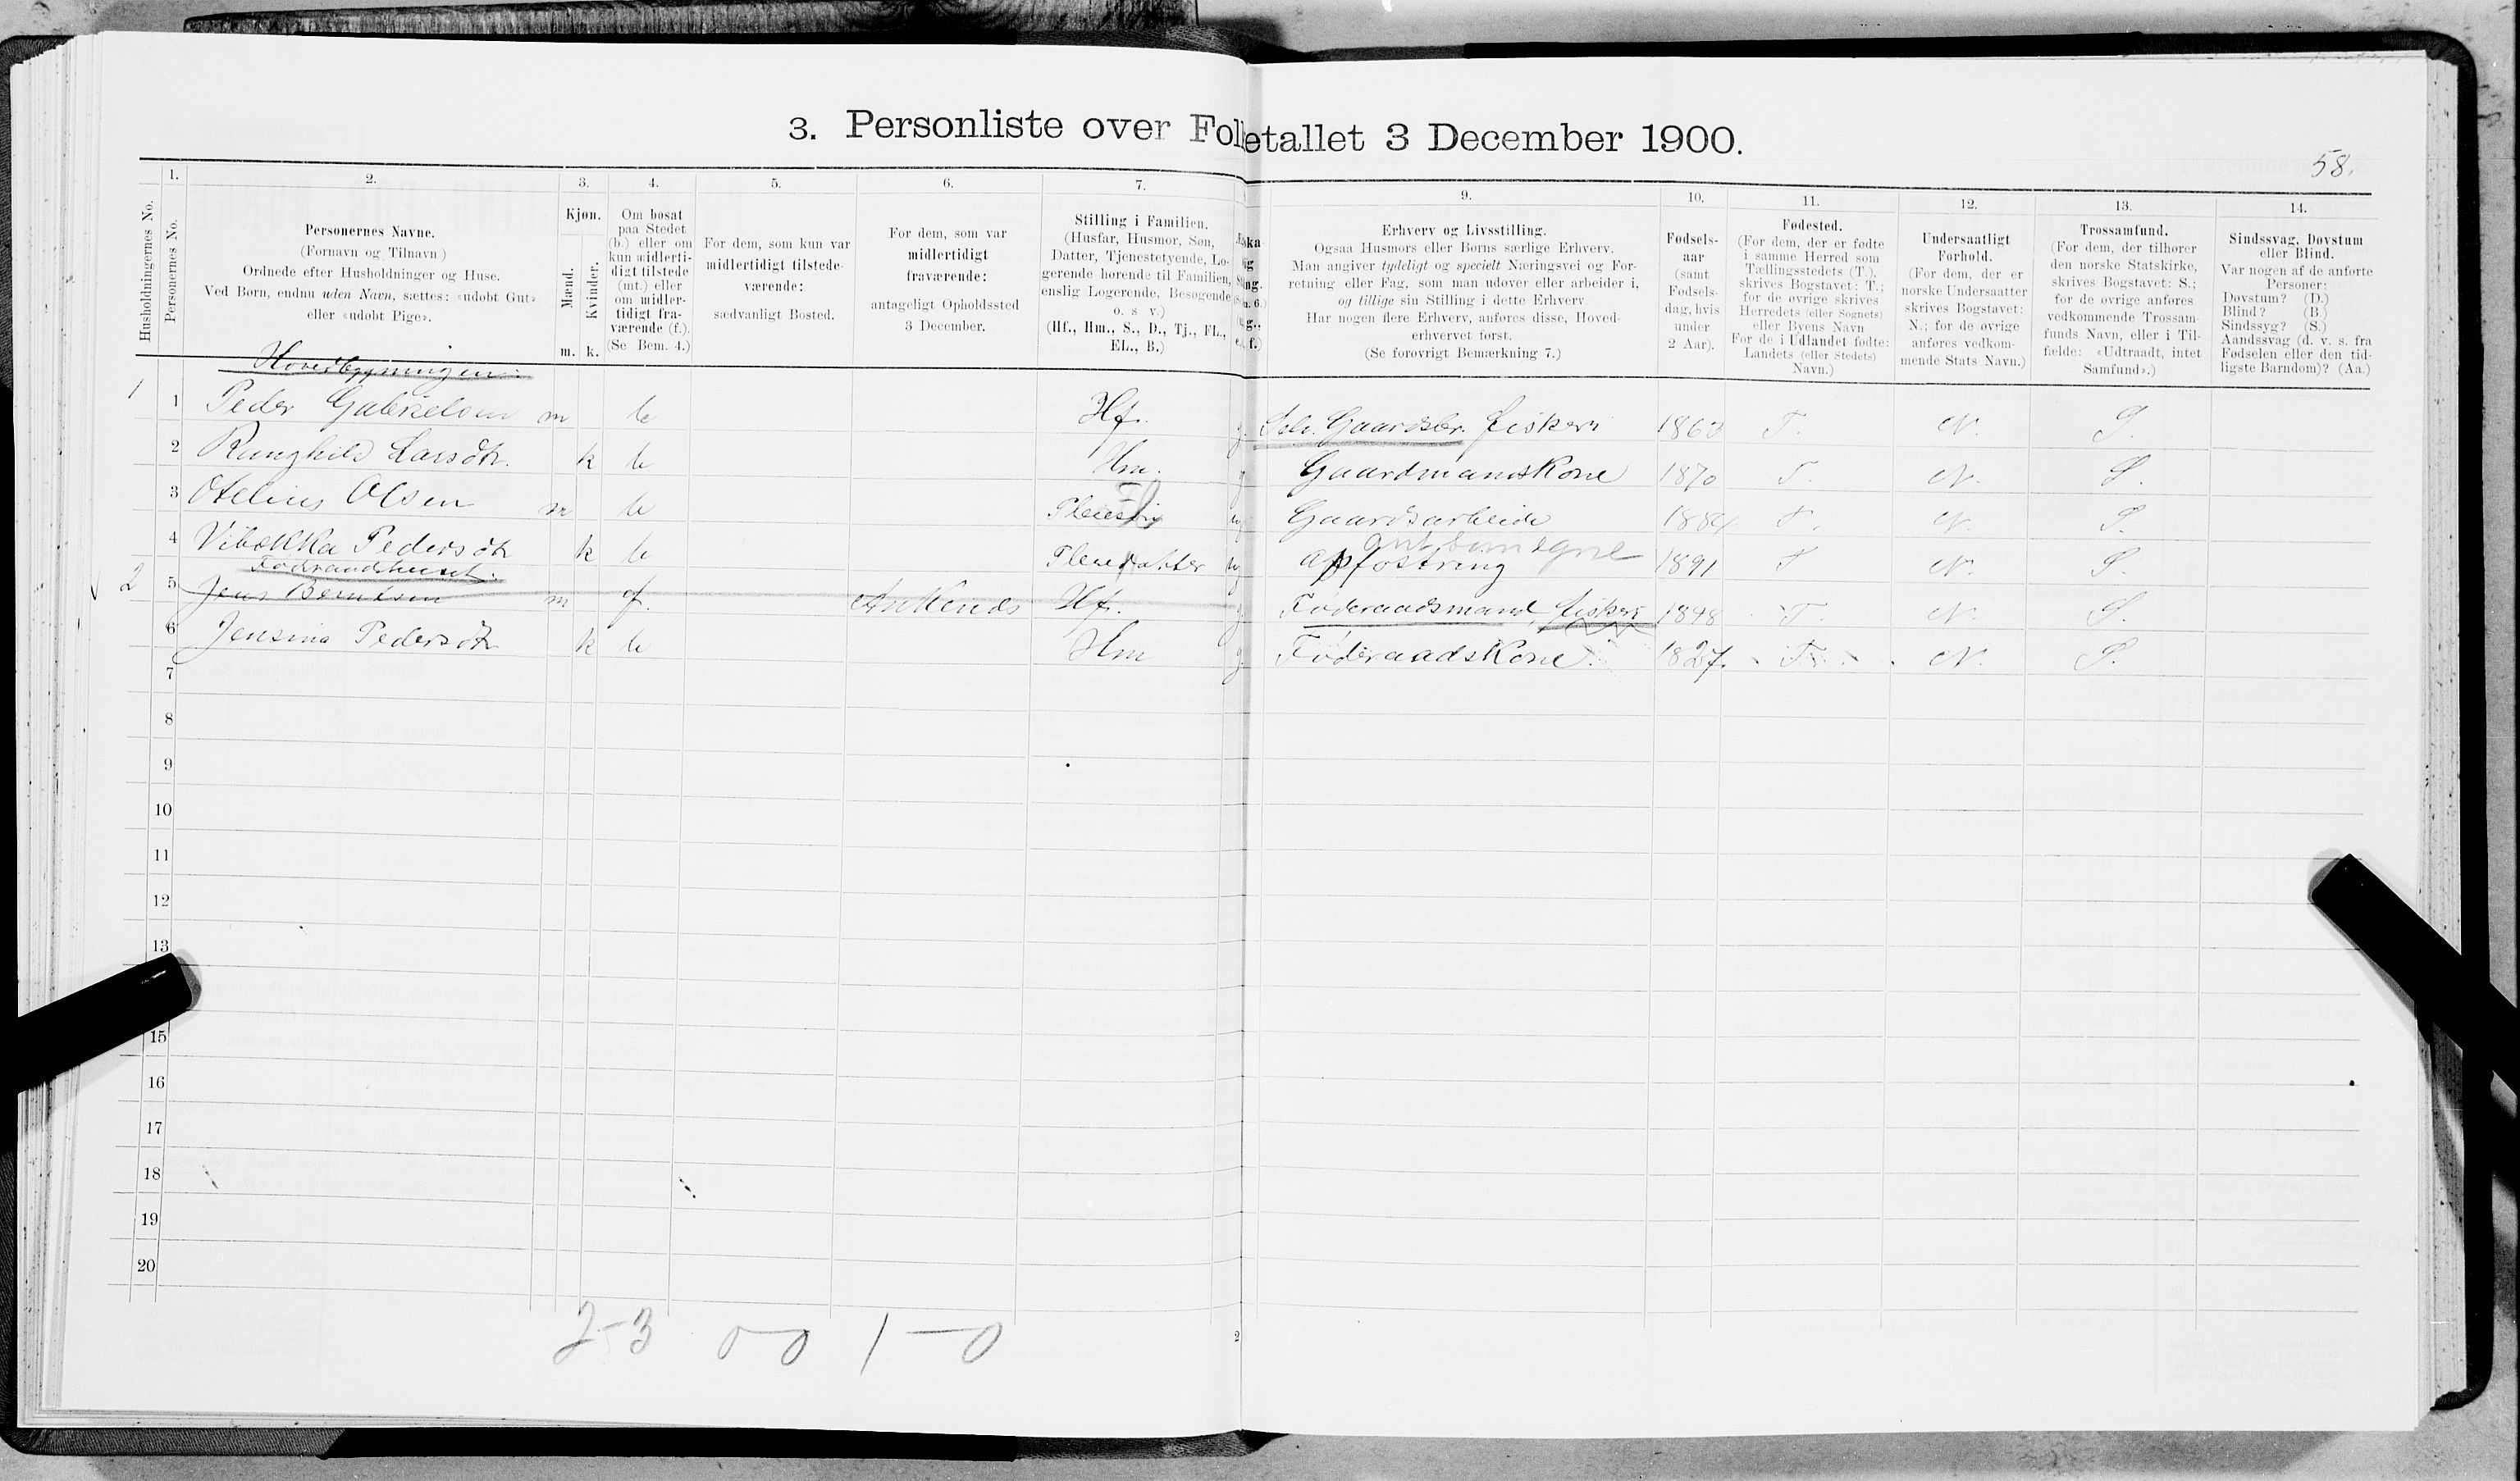 3. Personliste over Folketallet 3 December 1900.
58.
Husholdningernes No.
1.
Personernes No.
2.
Personernes Navne.
(Fornavn og Tilnavn)
Ordnede efter Husholdninger og Huse.
Ved Børn, endnu uden Navn, sættes: «udøbt Gut»
eller «udøbt Pige».
3.
Kjøn.
Mænd.
Kvinder.
m. k.
4.
Om bosat
paa Stedet
(b.) eller om
kun midlerti-
digt tilstede
(mt.) eller
om midler-
tidigt fra-
værende (f.).
(Se Bem. 4.)
5.
For dem, som kun var
midlertidigt tilstede-
værende:
sædvanligt Bosted.
6.
For dem, som var
midlertidigt
fraværende:
antageligt Opholdssted
3 December.
7.
Stilling i Familien.
(Husfar, Husmor, Søn,
Datter, Tjenestetyende, Lo-
gerende hørende til Familien,
enslig Logerende, Besøgende
o. s v.)
(Hf., Hm., S., D., Tj., FL.,
EL., B.)
9.
Erhverv og Livsstilling.
Ogsaa Husmors eller Børns særlige Erhverv.
Man angiver tydeligt og specielt Næringsvei og For-
retning eller Fag, som man udøver eller arbeider i,
og tillige sin Stilling i dette Erhverv.
Har nogen flere Erhverv, anføres disse, Hoved-
erhvervet først.
(Se forøvrigt Bemærkning 7.)
10.
Fødsels-
aar
(samt
Fødsels-
dag, hvis
under
2 Aar).
11.
Fødested.
(For dem, der er fødte
i samme Herred som
Tællingsstedets (T.),
skrives Bogstavet: T.;
for de øvrige skrives
Herredets (eller Sognets)
eller Byens Navn
For de i Udlandet fødte:
Landets (eller Stedets)
Navn.)
12.
Undersaatligt
Forhold.
(For dem, der er
norske Undersaatter
skrives Bogstavet:
N.; for de øvrige
anføres vedkom-
mende Stats Navn.)
13.
Trossamfund.
(For dem, der tilhører
den norske Statskirke,
skrives Bogstavet: S.;
for de øvrige anføres
vedkommende Trossam-
funds Navn, eller i Til-
fælde: «Udtraadt, intet
Samfund».)
14.
Sindssvag, Døvstum
eller Blind.
Var nogen af de anførte
Personer:
Døvstum? (D.)
Blind? (B.)
Sindssyg? (S.)
Aandssvag (d. v. s. fra
Fødselen eller den tid-
ligste Barndom)? (Aa.)
Hovedbygningen.
1 1 Peder Gabrielsen m b Hf. g Selv. Gaardbr. fiskeri T. N. S.
2 Ranghild Larsdtr. k b Hm. g Gaardmandskone 1870 T. N. S.
3 Otelius Olsen m b Fl ug Gaardsarbeide T. N. S.
4 Vibekka Pedersdtr k b ug opfostring som egne 1891 T N. S.
Føderaadshuset.
2 5 Jens Berntsen m f. Hf. g Føderaadsmand, fiskeri 1848 T. N. S.
6 Jensina Pedersdtr k b Hm g Føderaadskone. 1827. T. N. S.
7
8
9
10
11
12
13
15
16
17
18
19
20
2-3 0-0 1-0
2